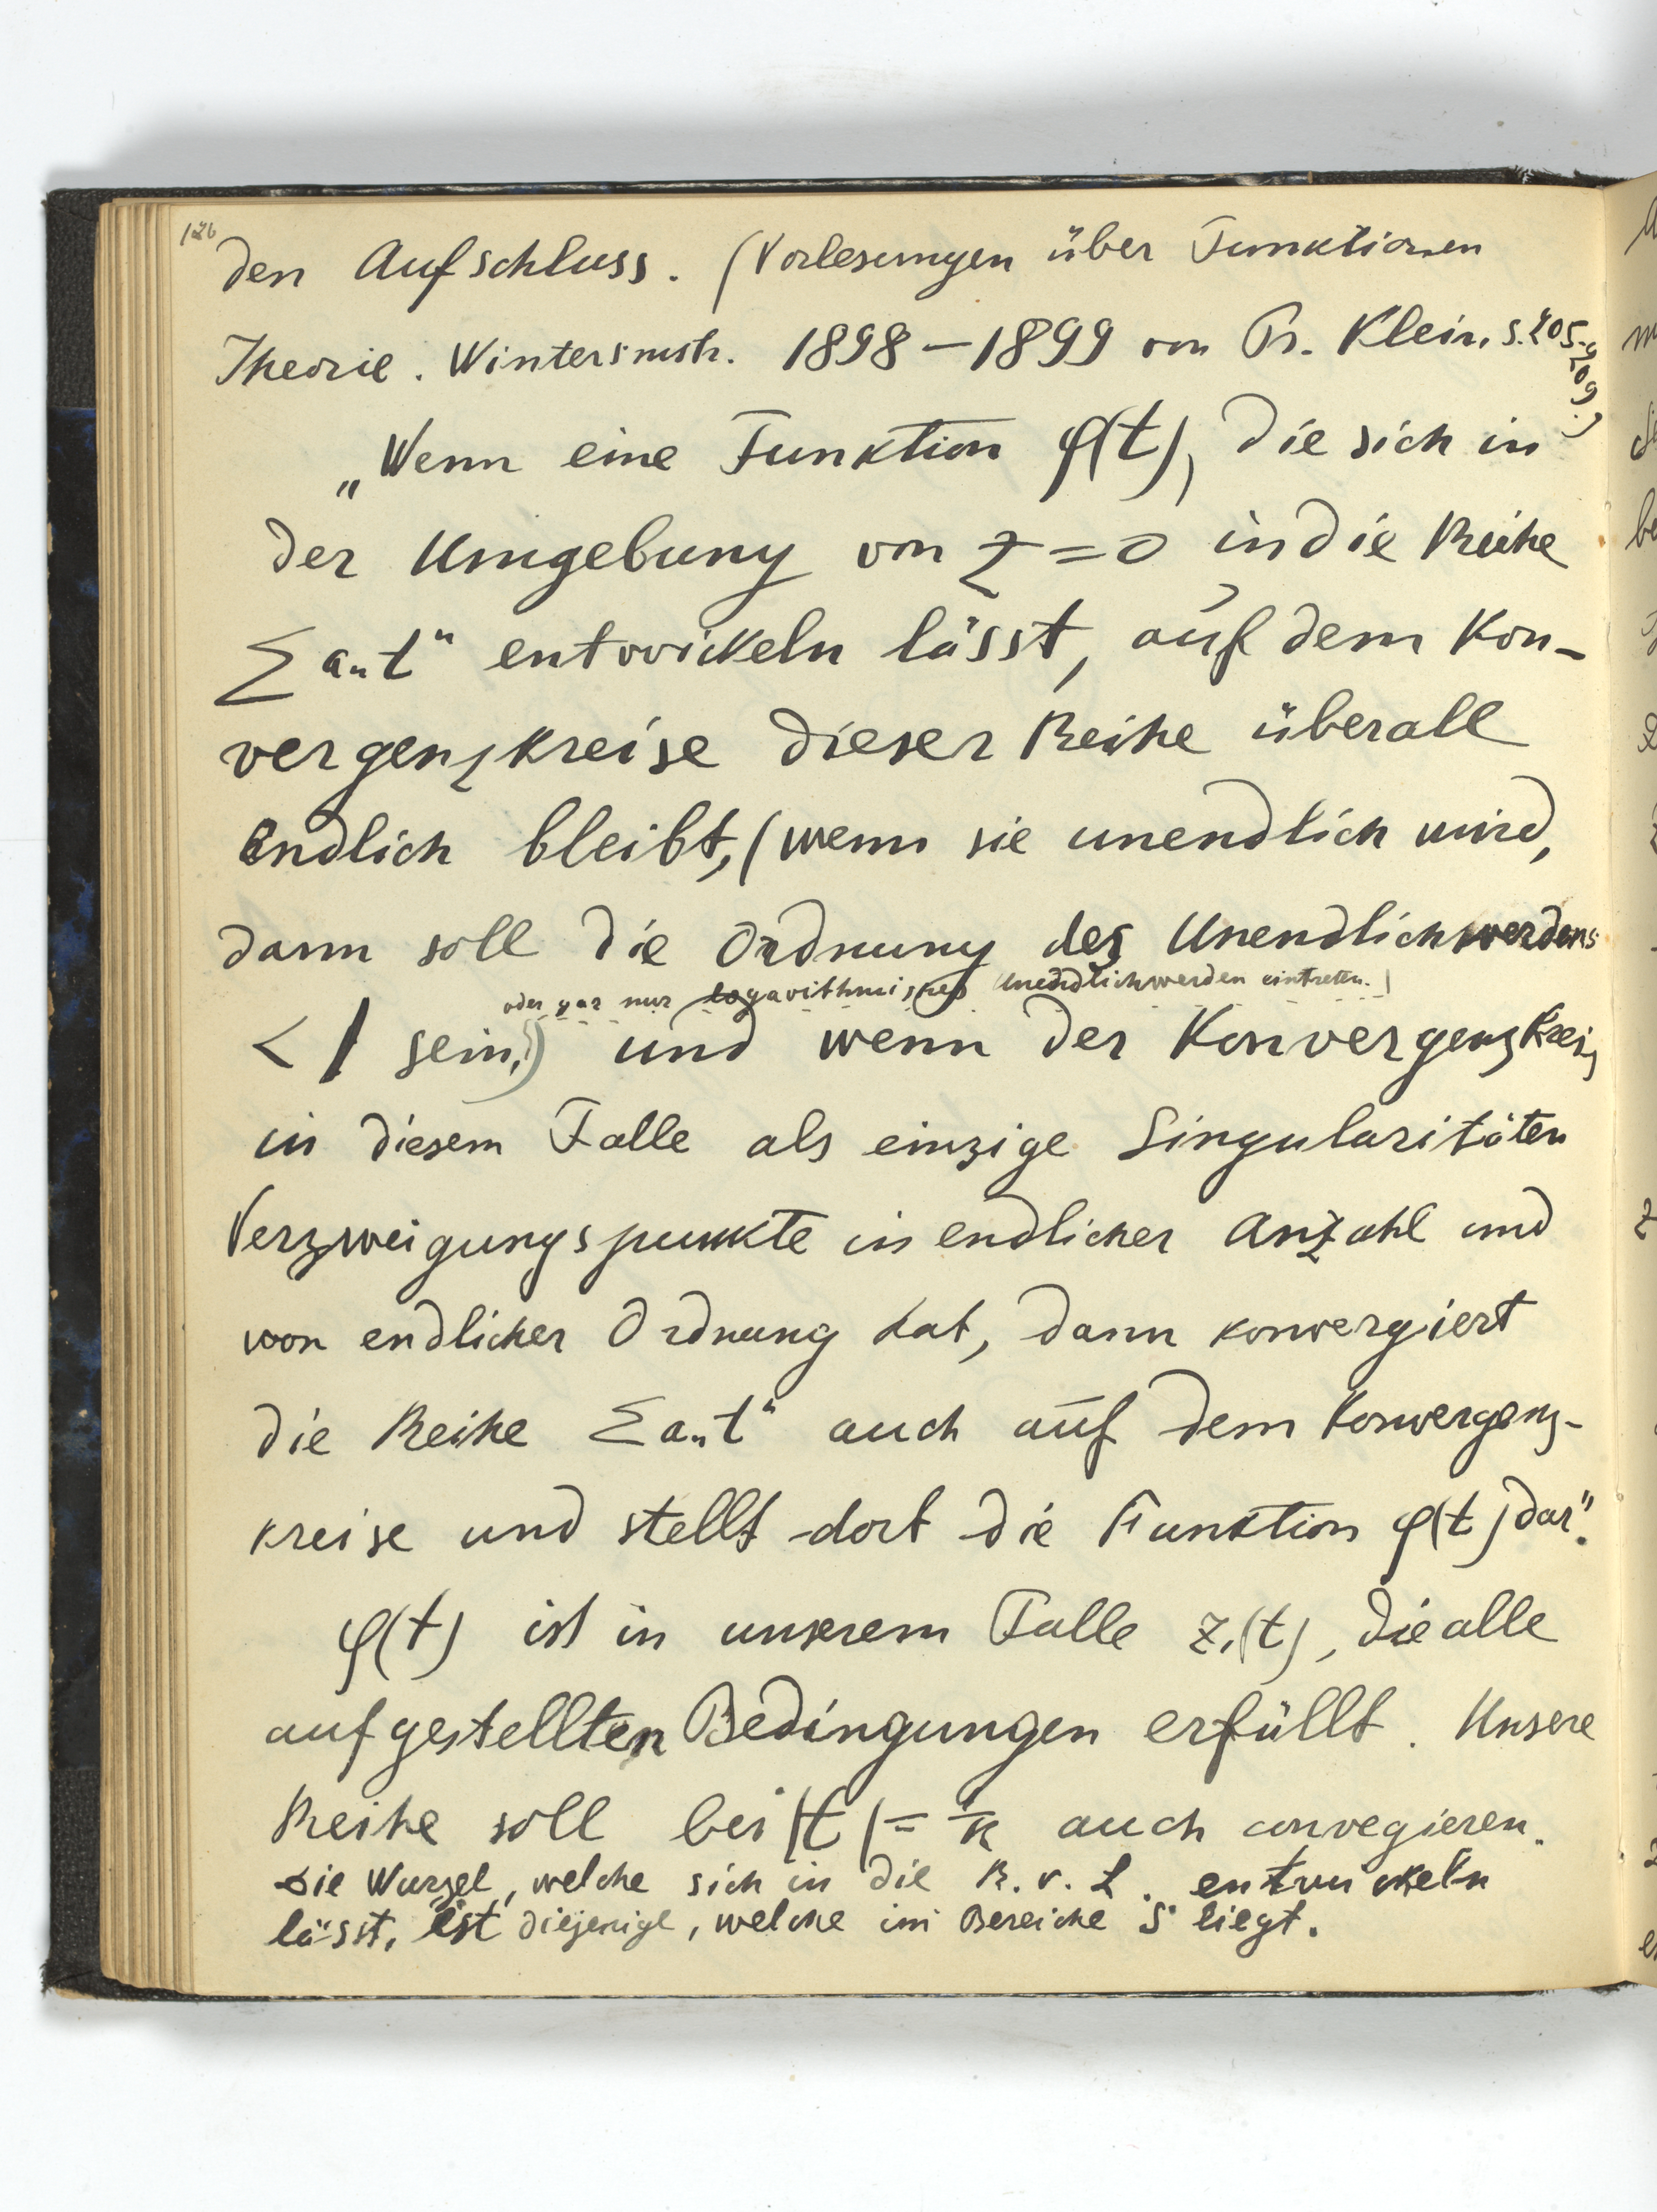 126
den Aufschluss. (Vorlesungen über Funktionen
Theorie. Wintersmstr. 1898–1899 von Pr. Klein, S. 205-209.)
„Wenn eine Funktion φ(t), die sich in
der Umgebung von z=0 in die Reihe
Σ aₙtⁿ entwickeln lässt, auf dem Kon-
vergenzkreise dieser Reihe überall
endlich bleibt, (wenn sie unendlich wird,
dann soll die Ordnung des Unendlichwerdens
oder gar nur logarithmisches Unendlichwerden eintreten.)
< 1 sein,) und wenn der Konvergenzkreis
in diesem Falle als einzige Singularitäten
Verzweigungspunkte in endlicher Anzahl und
von endlicher Ordnung hat, dann konvergiert
die Reihe Σ aₙtⁿ auch auf dem Konvergenz-
kreise und stellt dort die Funktion φ(t) dar".
φ(t) ist in unserem Falle z₁(t), die alle
aufgestellten Bedingungen erfüllt. Unsere
Reihe soll bei |t| = auch convegieren.
Die Wurzel, welche sich in die R. v. L. entwickeln
lässt, ist diejenige, welche im Bereiche S liegt.